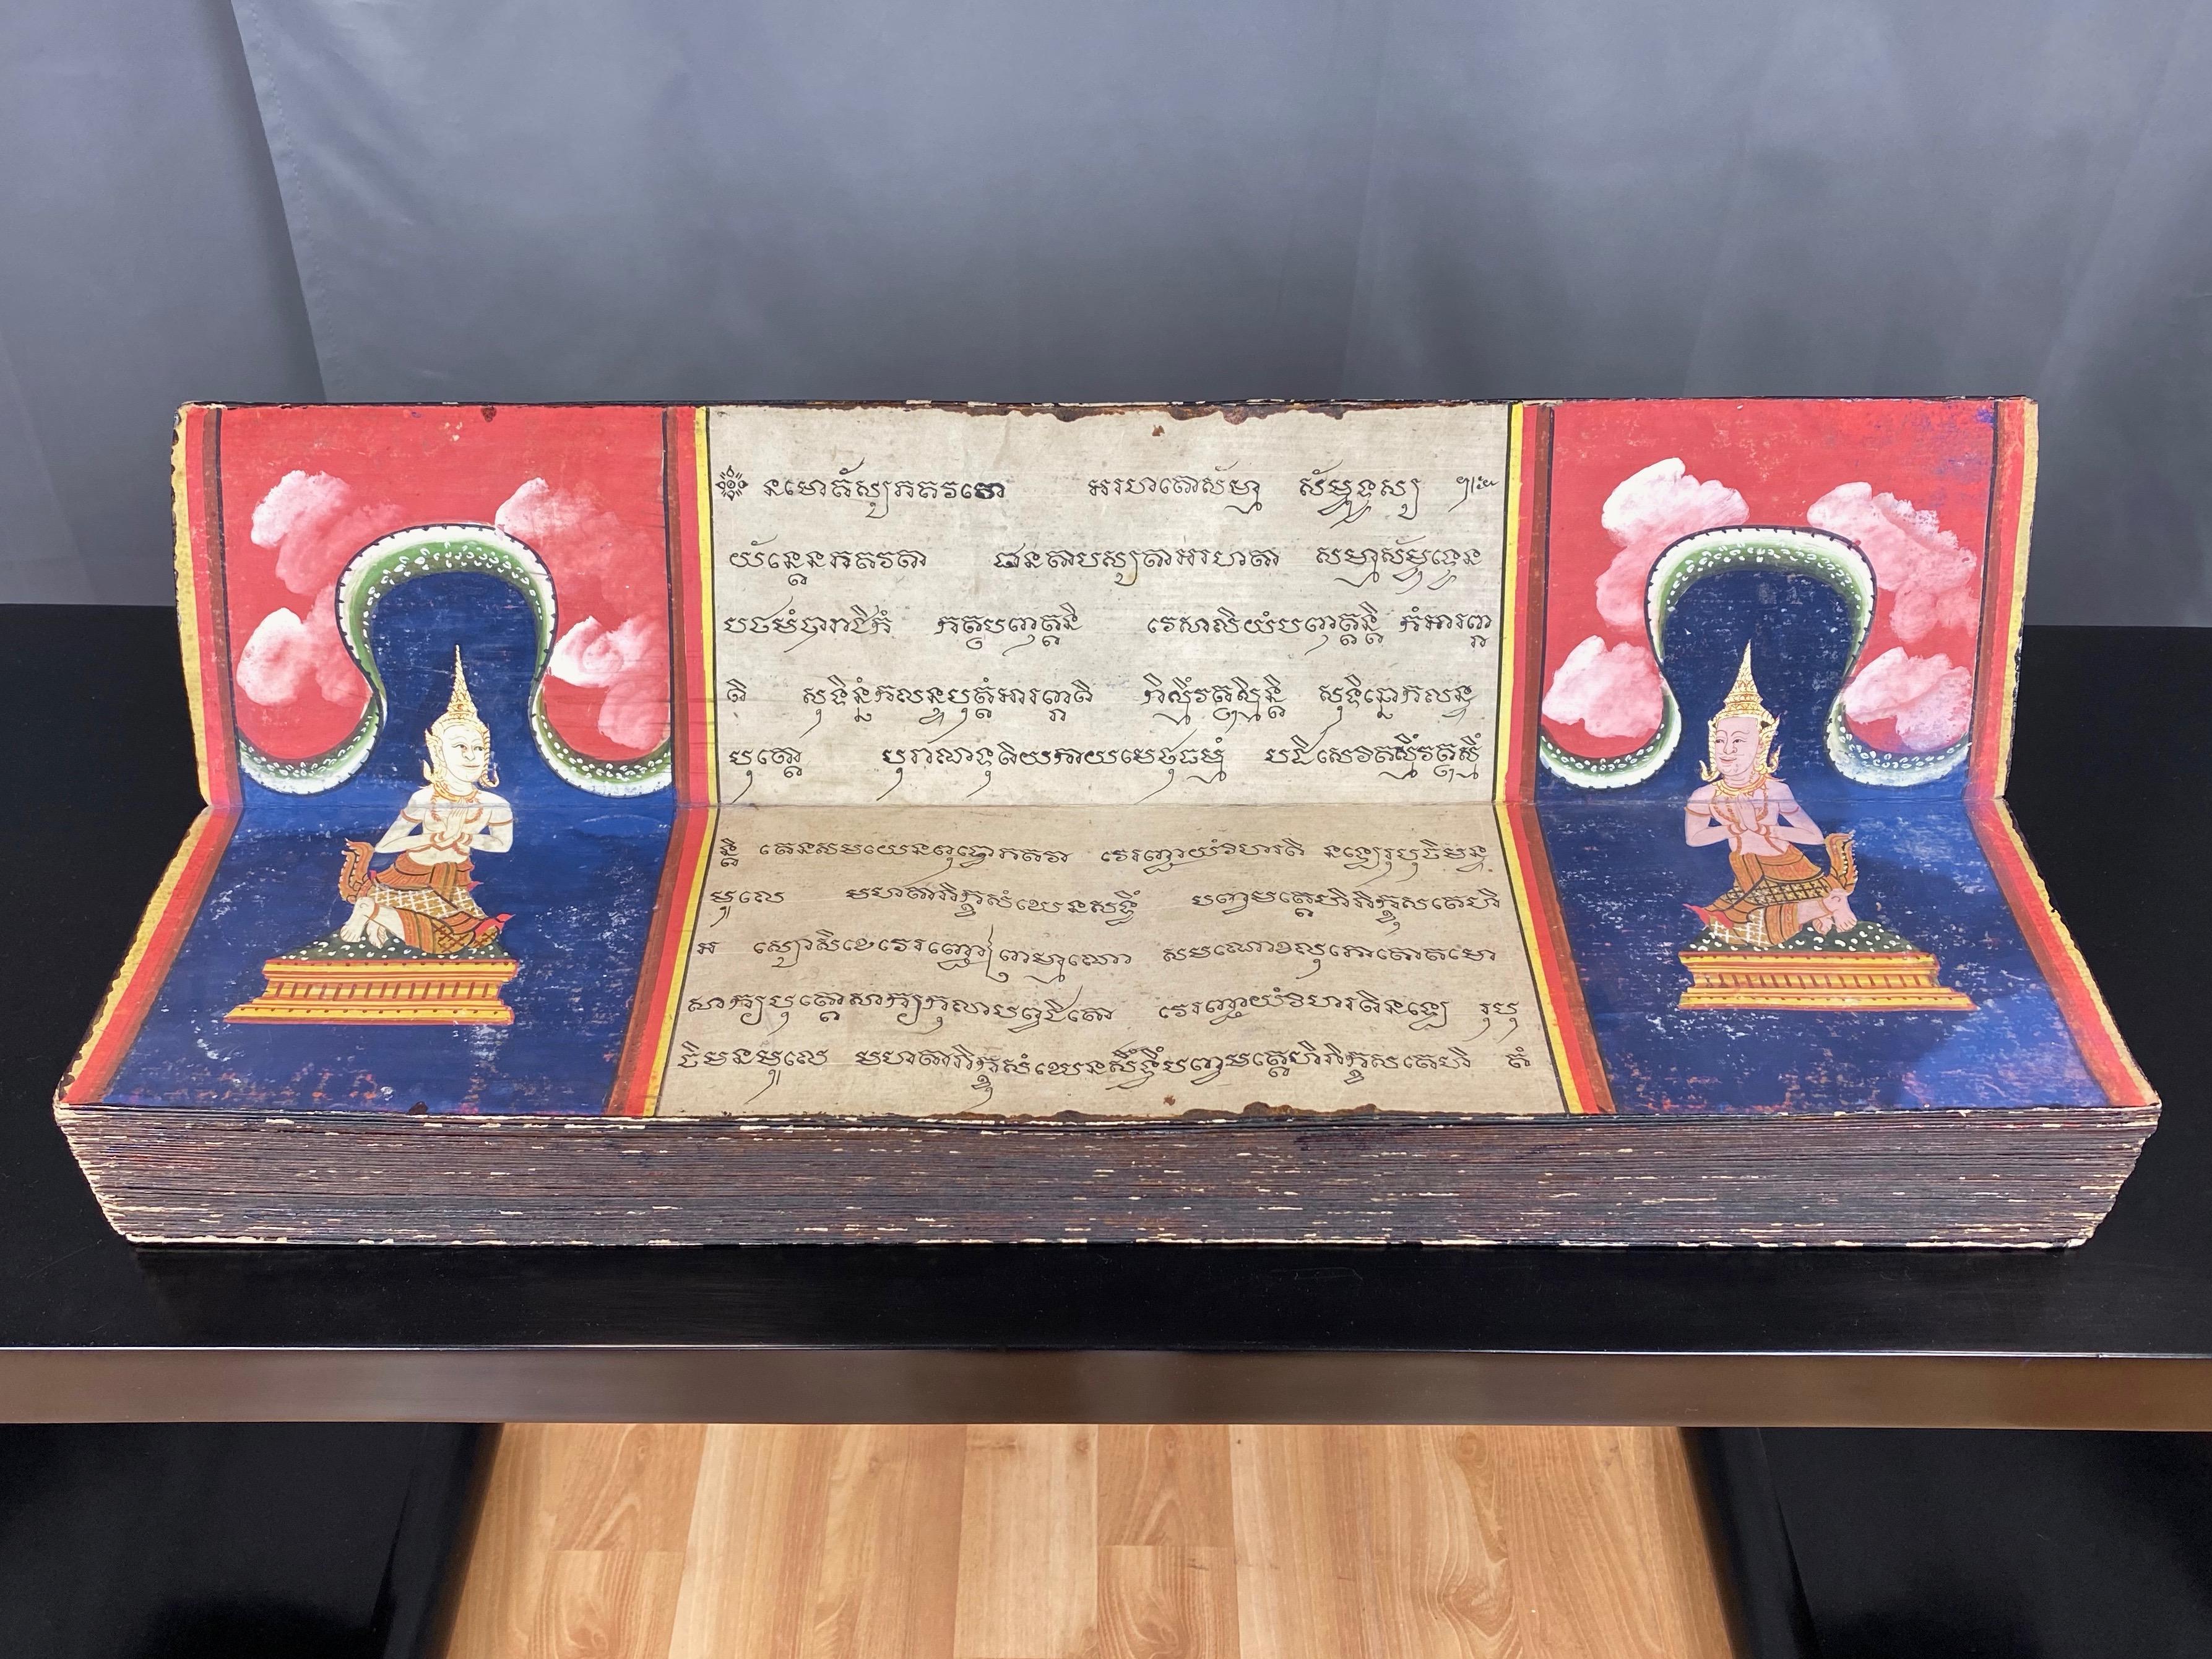 នមោតស្សភគវតោ អរហតោសម្មា សម្ពុទ្ធស្ស
យន្តេនភគវតា ជានតាបស្សតាអរហតា សម្មាសម្ពុទ្ធេន
បឋមំបារាជិកំ កត្ថបញ្ញត្តន្តិ វេសាលិយំបញ្ញត្តន្តិ កំអារព្ភា
តិ សុទិន្នំកលន្ទបុត្តំអារព្ភាតិ កិស្មឹវត្ថុស្មិន្តិ សុទិន្នោកលន្ទ
បុត្តោ បុរាណទុតិយិកាយមេថុនធម្មំ បដិសេវិតស្មឹវត្ថុស្មឹ
ន្តិ តេនសមយេនពុទ្ធោភគវា វេរញ្ជាយំវិហរតិ នឡេរុបុចិមន្ទ
មូលេ មហតាភិក្ខុសំឃេនសទ្ធឹ បញ្ចមត្តេហិភិក្ខុសតេហិ
អ ស្សោសិខោវេរញ្ជោព្រាហ្មណោ សមណោខលុភោគោតមោ
សក្យបុត្តោសក្យកុលាបព្វជិតោ វេរញ្ជាយំវិហរតិនឡេ រុបុ
ចិមនមូលេ មហតាភិក្ខុសំឃេនសទ្ធឹបញ្ចមត្តេហិភិក្ខុសតេហិ តំ